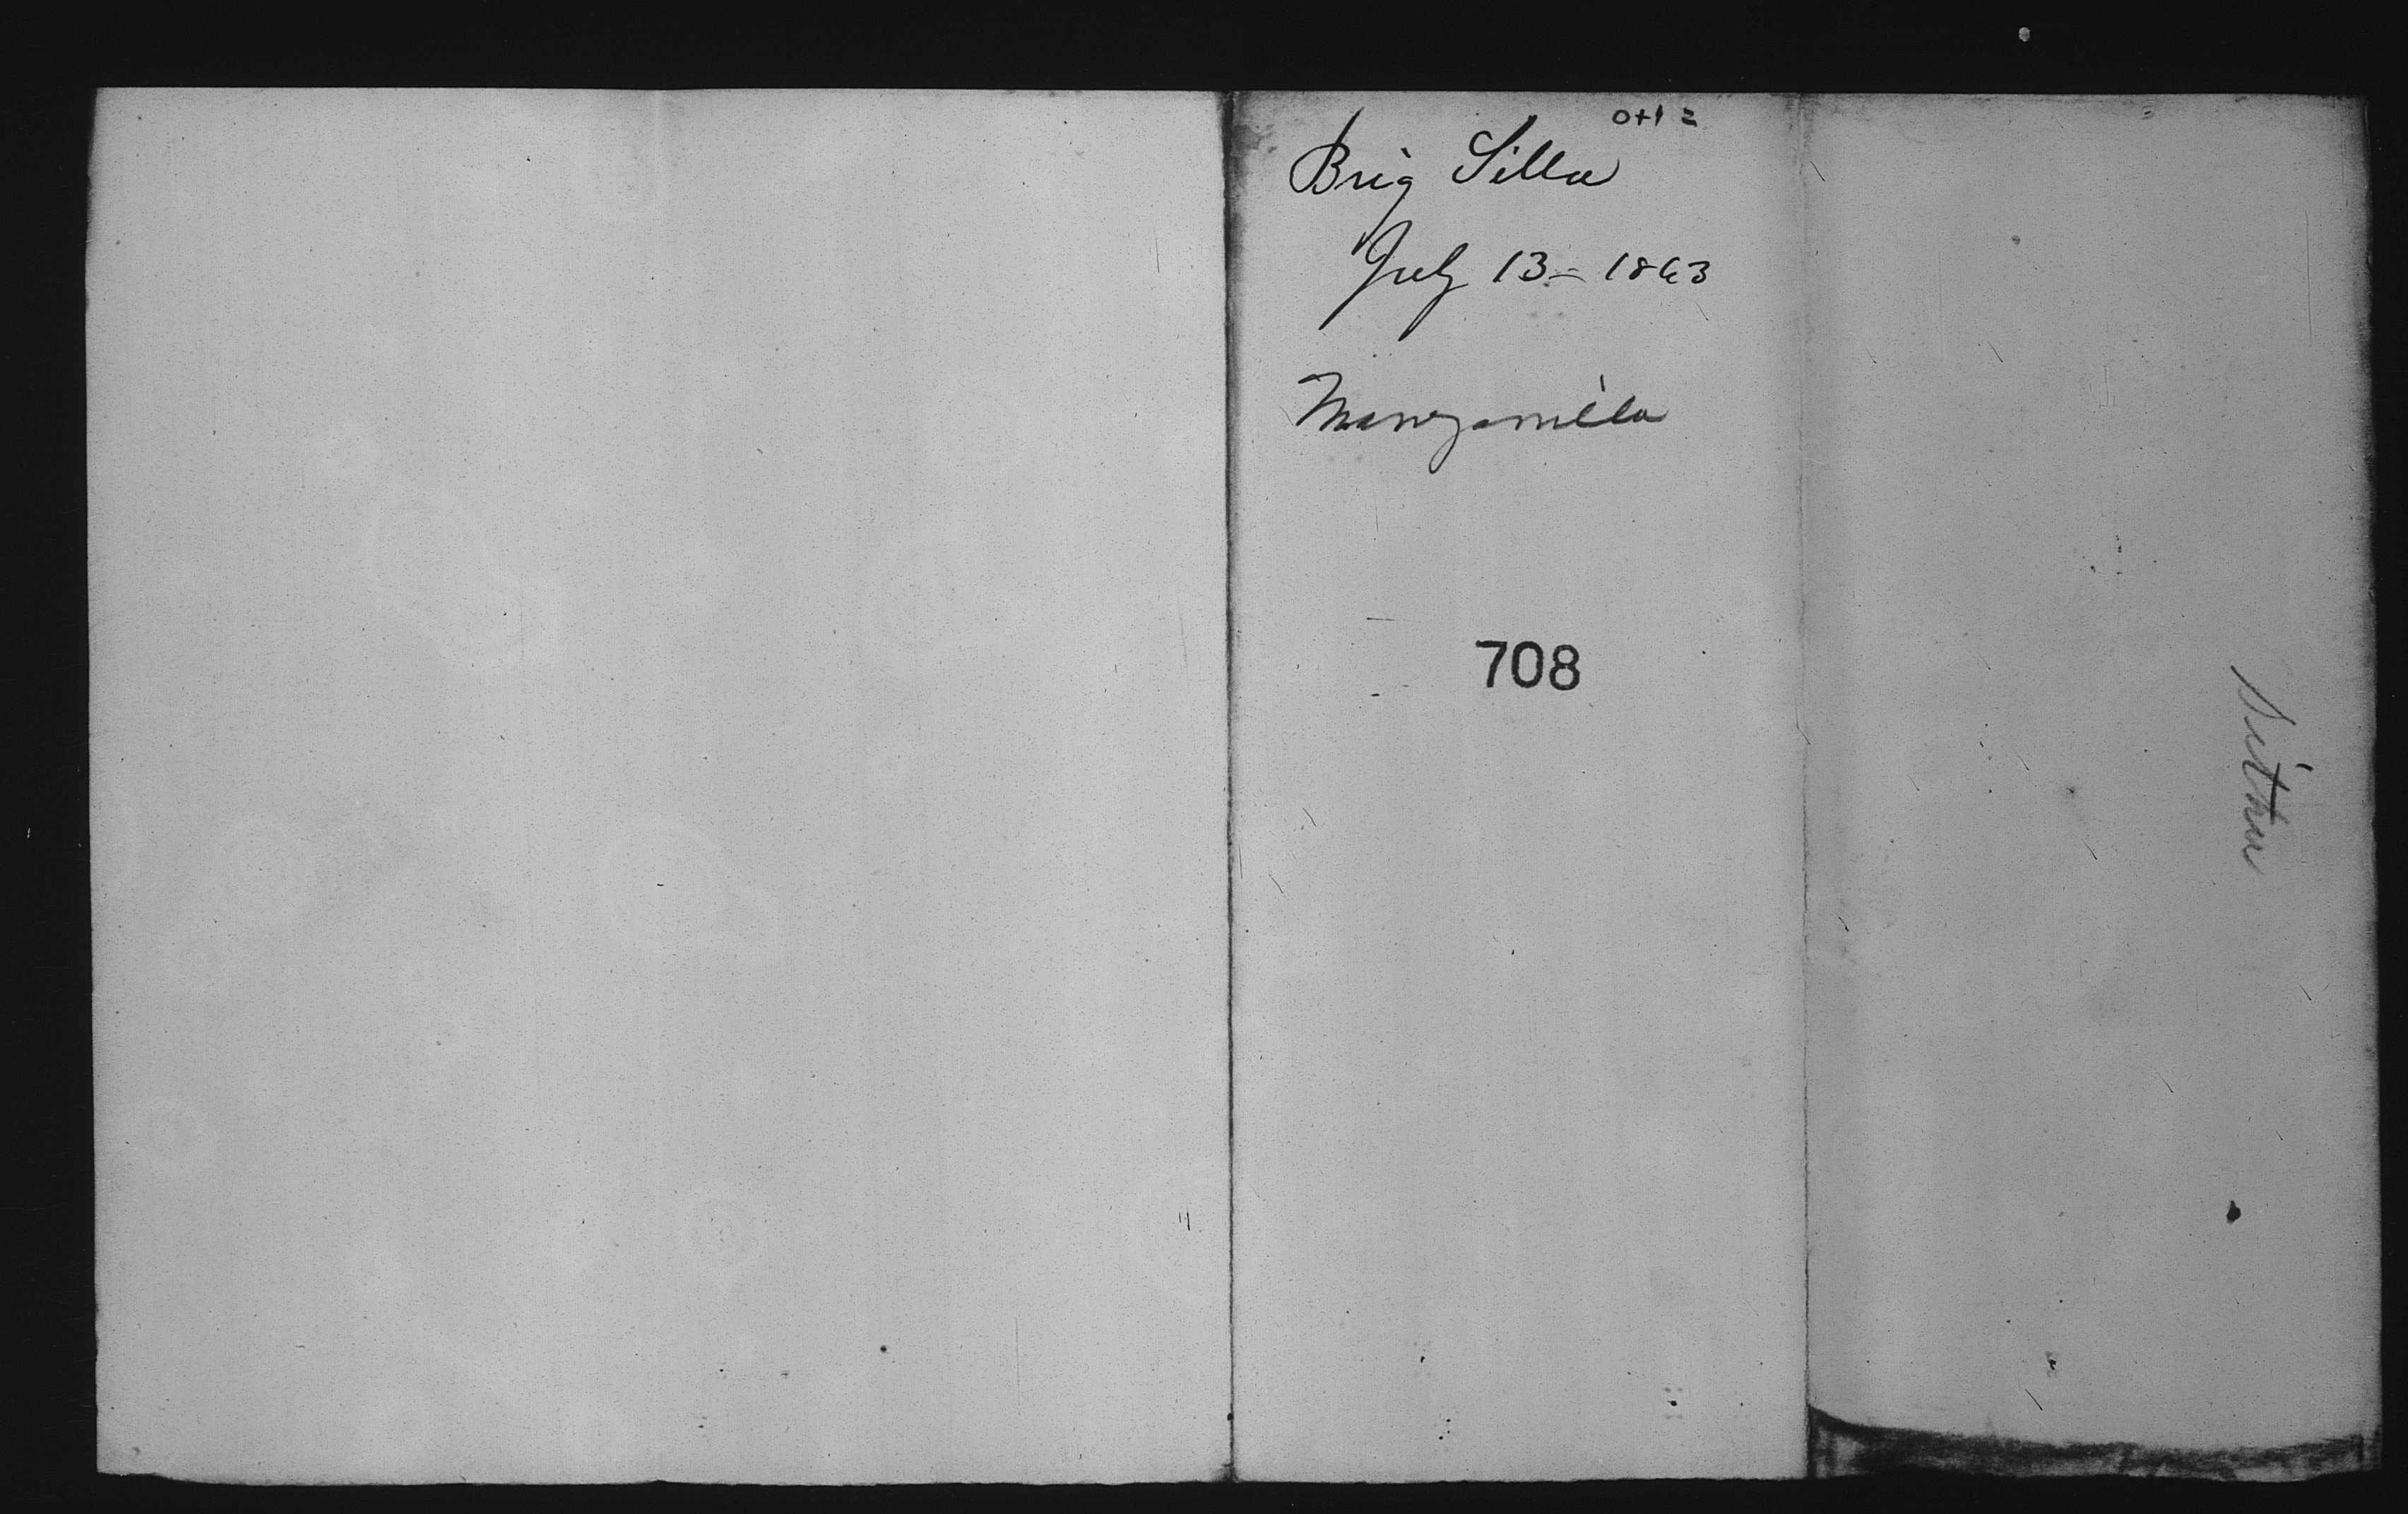 0+1 =
Brig Silla
July 13 - 1863
Manzanilla
708